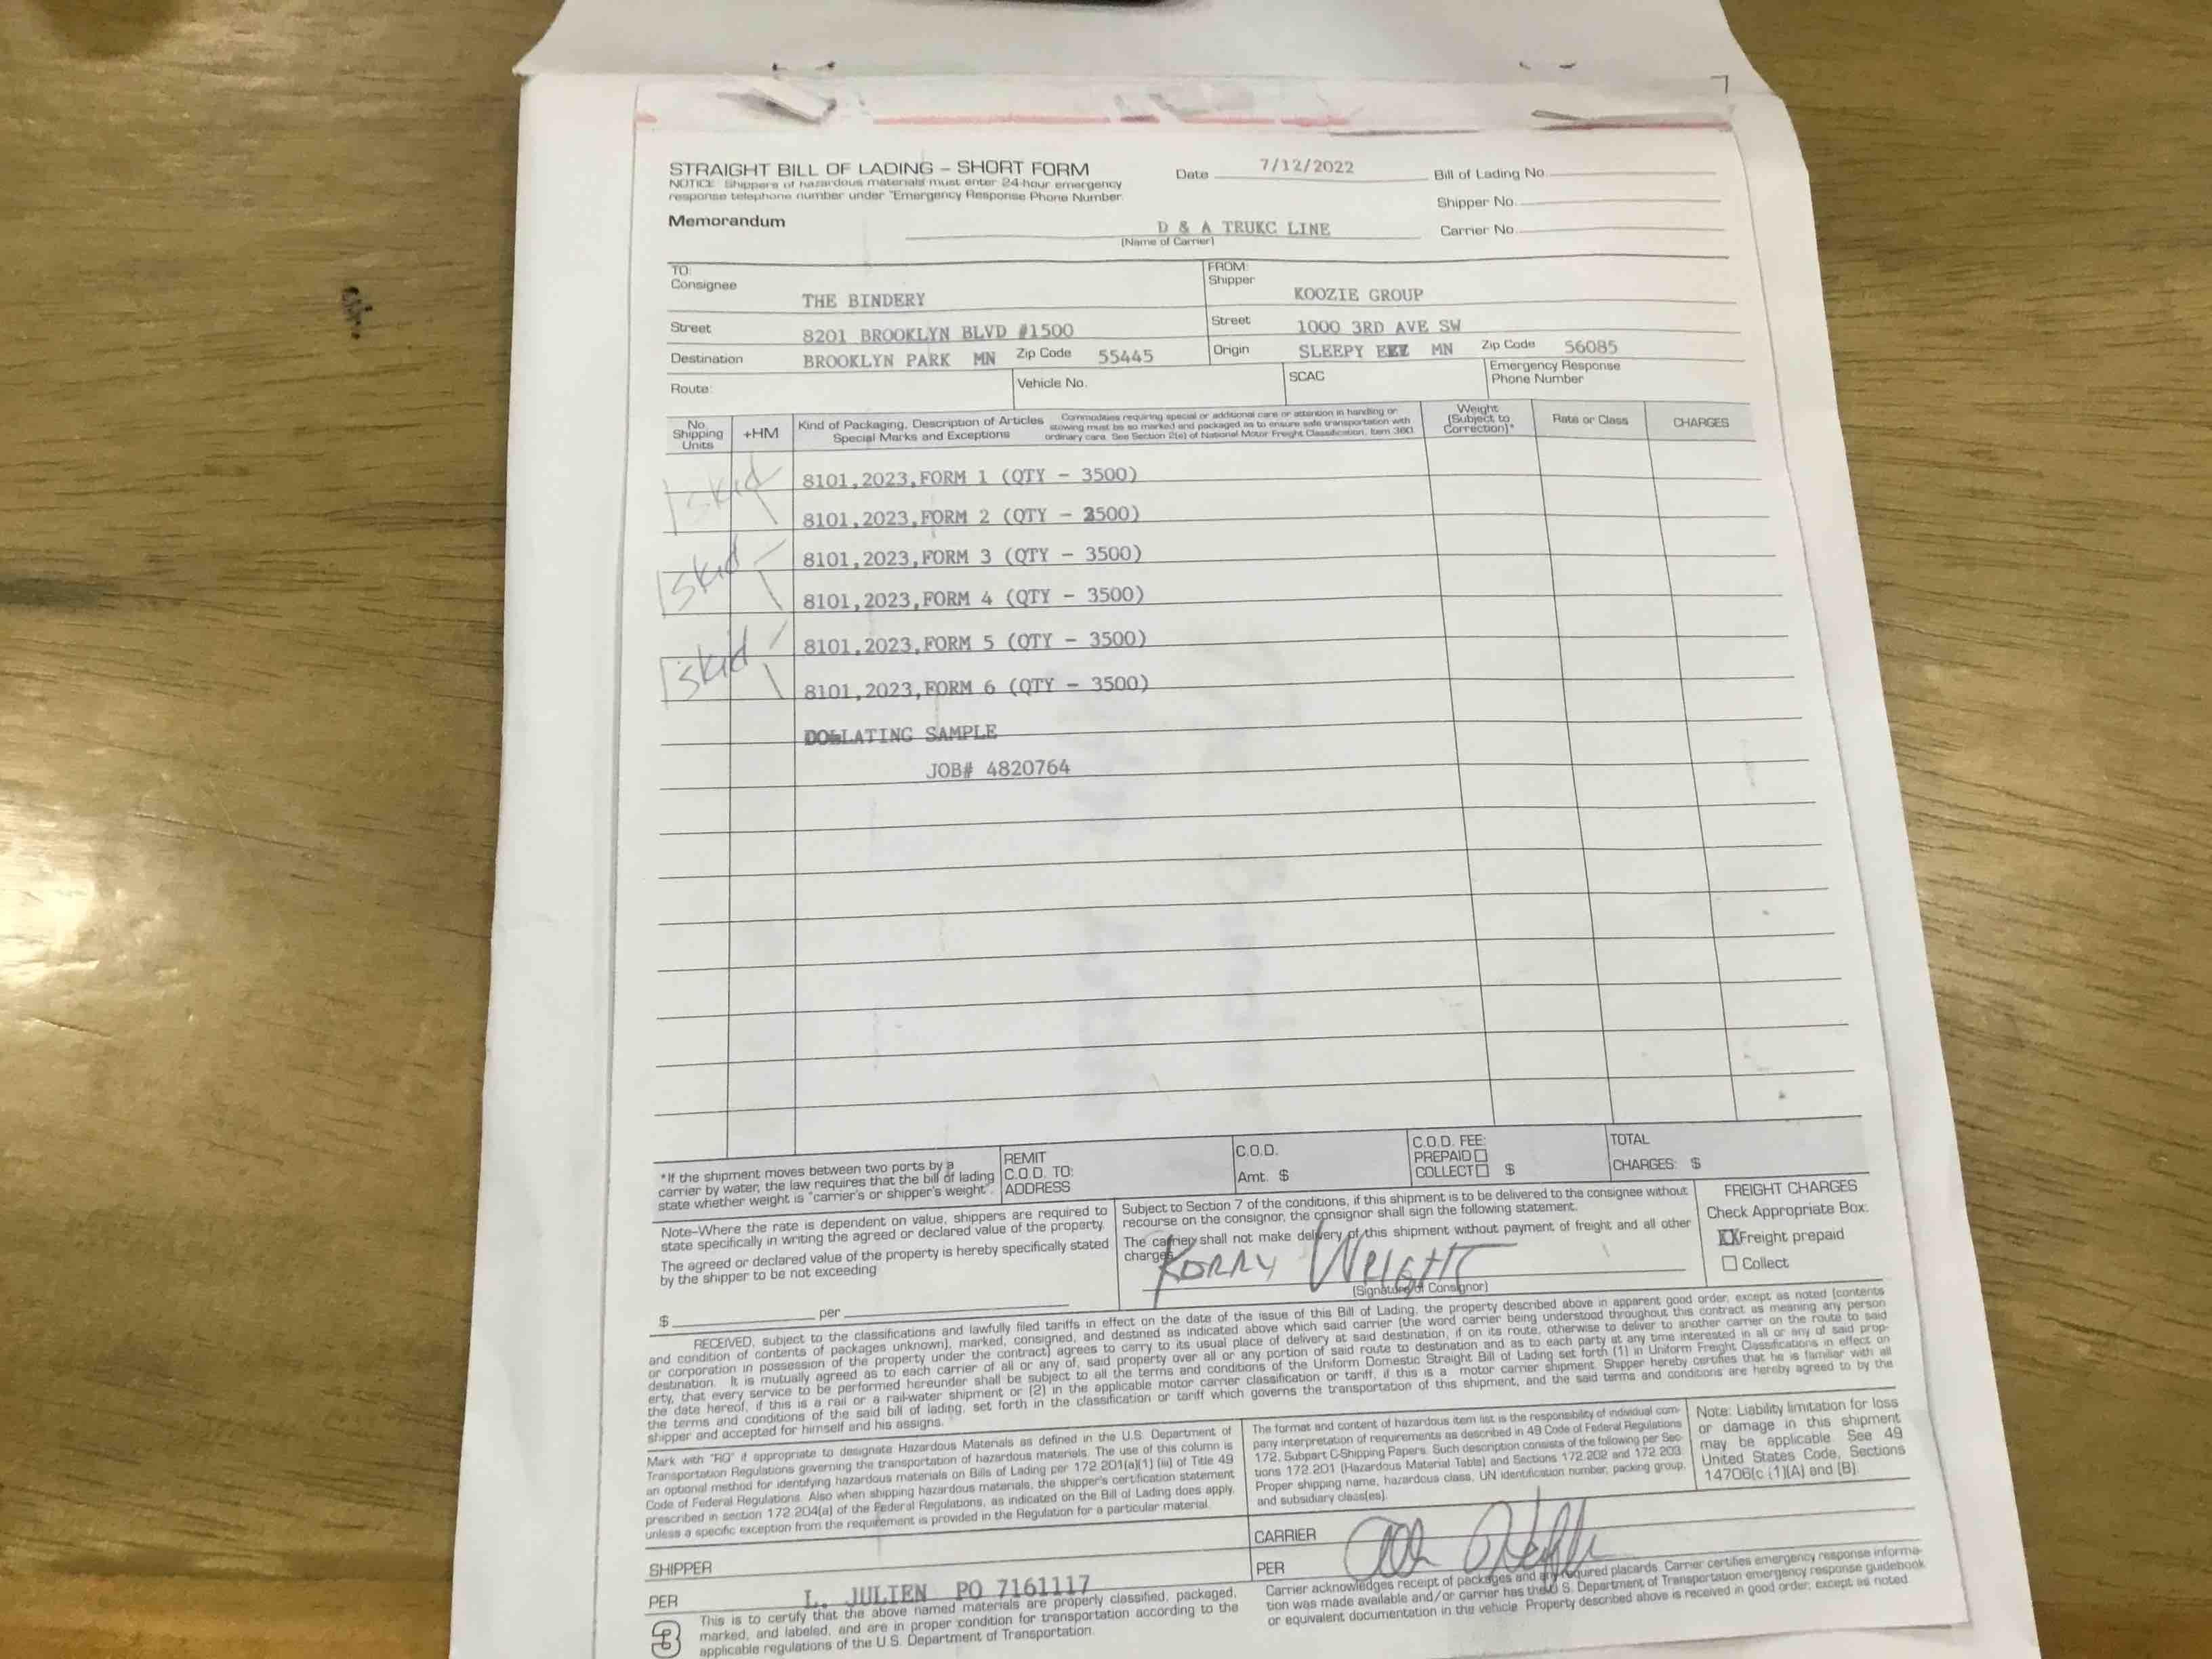 STRAIGHT BILL OF LADING – SHORT FORM
NOTICE: Shippers of hazardous materials must enter 24-hour emergency
response telephone number under "Emergency Response Phone Number.
Memorandum
Date 7/12/2022
Bill of Lading No.
Shipper No.
Carrier No.
D & A TRUKC LINE
(Name of Carrier)
TO:
Consignee
THE BINDERY
Street 8201 BROOKLYN BLVD #1500
Destination BROOKLYN PARK MN Zip Code 55445
FROM:
Shipper
KOOZIE GROUP
Street 1000 3RD AVE SW
Origin SLEEPY MN Zip Code 56085
Route:
Vehicle No.
SCAC
Emergency Response
Phone Number
No.
Shipping
Units
+HM
Kind of Packaging, Description of Articles
Special Marks and Exceptions
Commodities requiring special or additional care or attention in handling or
stowing must be so marked and packaged as to ensure safe transportation with
ordinary care. See Section 2(e) of National Motor Freight Classification, Item 360.
Weight
(Subject to
Correction)*
Rate or Class
CHARGES
skid
8101,2023,FORM 1 (QTY - 3500)
8101,2023,FORM 2 (QTY - 3500)
skid
8101,2023,FORM 3 (QTY - 3500)
8101,2023,FORM 4 (QTY - 3500)
skid
8101,2023,FORM 5 (QTY - 3500)
8101,2023,FORM 6 (QTY - 3500)
SAMPLE
JOB# 4820764
*If the shipment moves between two ports by a
carrier by water, the law requires that the bill of lading
state whether weight is "carrier's or shipper's weight".
REMIT
C.O.D. TO:
ADDRESS
C.O.D.
Amt. $
C.O.D. FEE:
PREPAID
COLLECT $
TOTAL
CHARGES: $
Note–Where the rate is dependent on value, shippers are required to
state specifically in writing the agreed or declared value of the property.
The agreed or declared value of the property is hereby specifically stated
by the shipper to be not exceeding
$ per
Subject to Section 7 of the conditions, if this shipment is to be delivered to the consignee without
recourse on the consignor, the consignor shall sign the following statement.
The carrier shall not make delivery of this shipment without payment of freight and all other
charges
KORRY WRIGHT
(Signature of Consignor)
FREIGHT CHARGES
Check Appropriate Box:
XX Freight prepaid
Collect
RECEIVED, subject to the classifications and lawfully filed tariffs in effect on the date of the issue of this Bill of Lading, the property described above in apparent good order, except as noted (contents
and condition of contents of packages unknown), marked, consigned, and destined as indicated above which said carrier (the word carrier being understood throughout this contract as meaning any person
or corporation in possession of the property under the contract) agrees to carry to its usual place of delivery at said destination, if on its route, otherwise to deliver to another carrier on the route to said
destination. It is mutually agreed as to each carrier of all or any of, said property over all or any portion of said route to destination and as to each party at any time interested in all or any of said prop-
erty, that every service to be performed hereunder shall be subject to all the terms and conditions of the Uniform Domestic Straight Bill of Lading set forth (1) in Uniform Freight Classifications in effect on
the date hereof, if this is a rail or a rail-water shipment or (2) in the applicable motor carrier classification or tariff, if this is a motor carrier shipment. Shipper hereby certifies that he is familiar with all
the terms and conditions of the said bill of lading, set forth in the classification or tariff which governs the transportation of this shipment, and the said terms and conditions are hereby agreed to by the
shipper and accepted for himself and his assigns.
Mark with "RQ" if appropriate to designate Hazardous Materials as defined in the U.S. Department of
Transportation Regulations governing the transportation of hazardous materials. The use of this column is
an optional method for identifying hazardous materials on Bills of Lading per 172.201(a)(1) (iii) of Title 49
Code of Federal Regulations. Also when shipping hazardous materials, the shipper's certification statement
prescribed in section 172.204(a) of the Federal Regulations, as indicated on the Bill of Lading does apply,
unless a specific exception from the requirement is provided in the Regulation for a particular material.
The format and content of hazardous item list is the responsibility of individual com-
pany interpretation of requirements as described in 49 Code of Federal Regulations
172, Subpart C-Shipping Papers. Such description consists of the following per Sec-
tions 172.201 (Hazardous Material Table) and Sections 172.202 and 172.203:
Proper shipping name, hazardous class, UN identification number, packing group,
and subsidiary class(es).
Note: Liability limitation for loss
or damage in this shipment
may be applicable. See 49
United States Code, Sections
14706(c (1)(A) and (B).
SHIPPER
PER L. JULIEN PO 7161117
CARRIER
PER
3
This is to certify that the above named materials are properly classified, packaged,
marked, and labeled, and are in proper condition for transportation according to the
applicable regulations of the U.S. Department of Transportation.
Carrier acknowledges receipt of packages and any required placards. Carrier certifies emergency response informa-
tion was made available and/or carrier has the U.S. Department of Transportation emergency response guidebook
or equivalent documentation in the vehicle. Property described above is received in good order, except as noted.